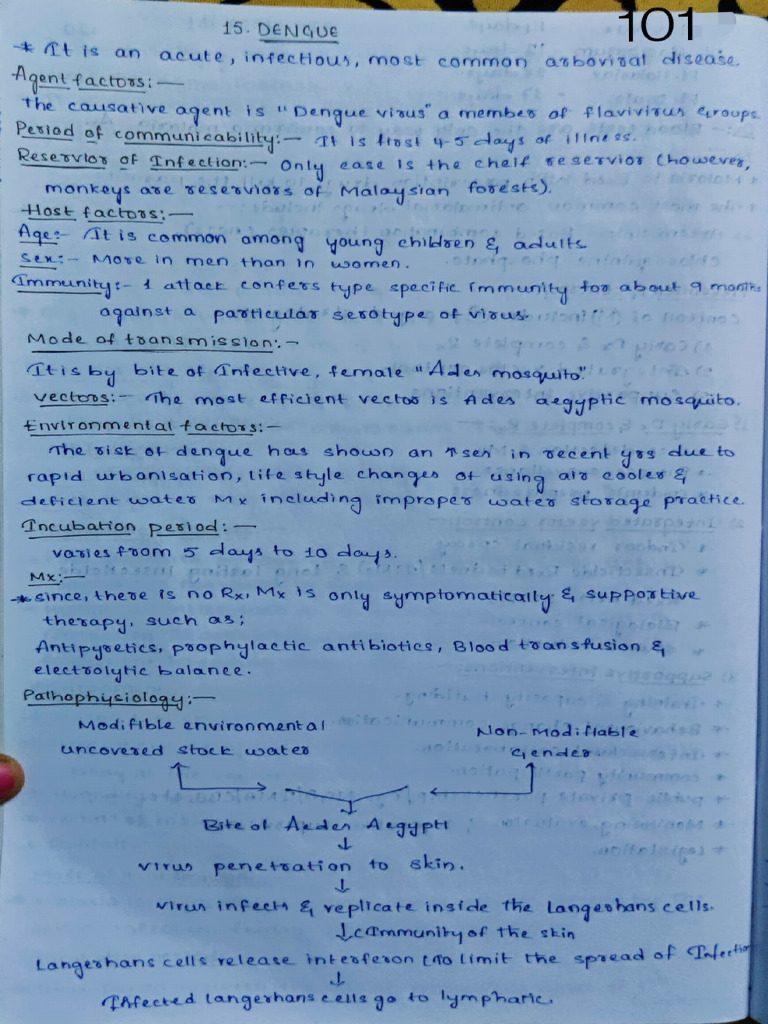 101
15. DENGUE
* It is an acute, infectious, most common arboviral disease.
Agent factors:—
The causative agent is "Dengue virus" a member of flavivirus Groups.
Period of communicability:— It is first 4-5 days of illness.
Reservior of Infection:— Only case is the cheif reservior (however,
monkeys are reserviors of Malaysian forests).
Host factors:—
Age:- It is common among young children & adults
Sex:- More in men than in women.
Immunity:- 1 attack confers type specific immunity for about 9 months
against a particular serotype of virus.
Mode of transmission:-
It is by bite of Infective, female "Ades mosquito".
Vectors:- The most efficient vector is Ades aegyptic mosquito.
Environmental factors:-
The risk of dengue has shown an ↑ser in recent yrs due to
rapid urbanisation, life style changes of using air cooler &
deficient water Mx including improper water storage practice.
Incubation period:—
varies from 5 days to 10 days.
Mx:—
* since, there is no Rx, Mx is only symptomatically & supportive
therapy, such as;
Antipyretics, prophylactic antibiotics, Blood transfusion &
electrolytic balance.
Pathophysiology:—
Modifible environmental Non-Modifiable
uncovered stock water Gender.
↓
Bite of Aedes Aegypti
↓
virus penetration to skin.
↓
virus infects & replicate inside the Langerhans cells.
↓ Immunity of the skin
Langerhans cells release interferon to limit the spread of Infection
↓
Affected langerhans cells go to lymphatic.